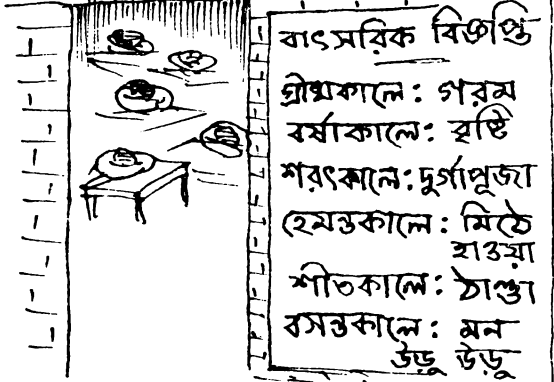 বাৎসরিক বিজ্ঞপ্তি
গ্রীষ্মকালে: গরম
বর্ষাকালে: বৃষ্টি
শরৎকালে: দুর্গাপূজা
হেমন্তকালে: মিঠে
হাওয়া
শীতকালে: ঠাণ্ডা
বসন্তকালে: মন
উড়ু উড়ু